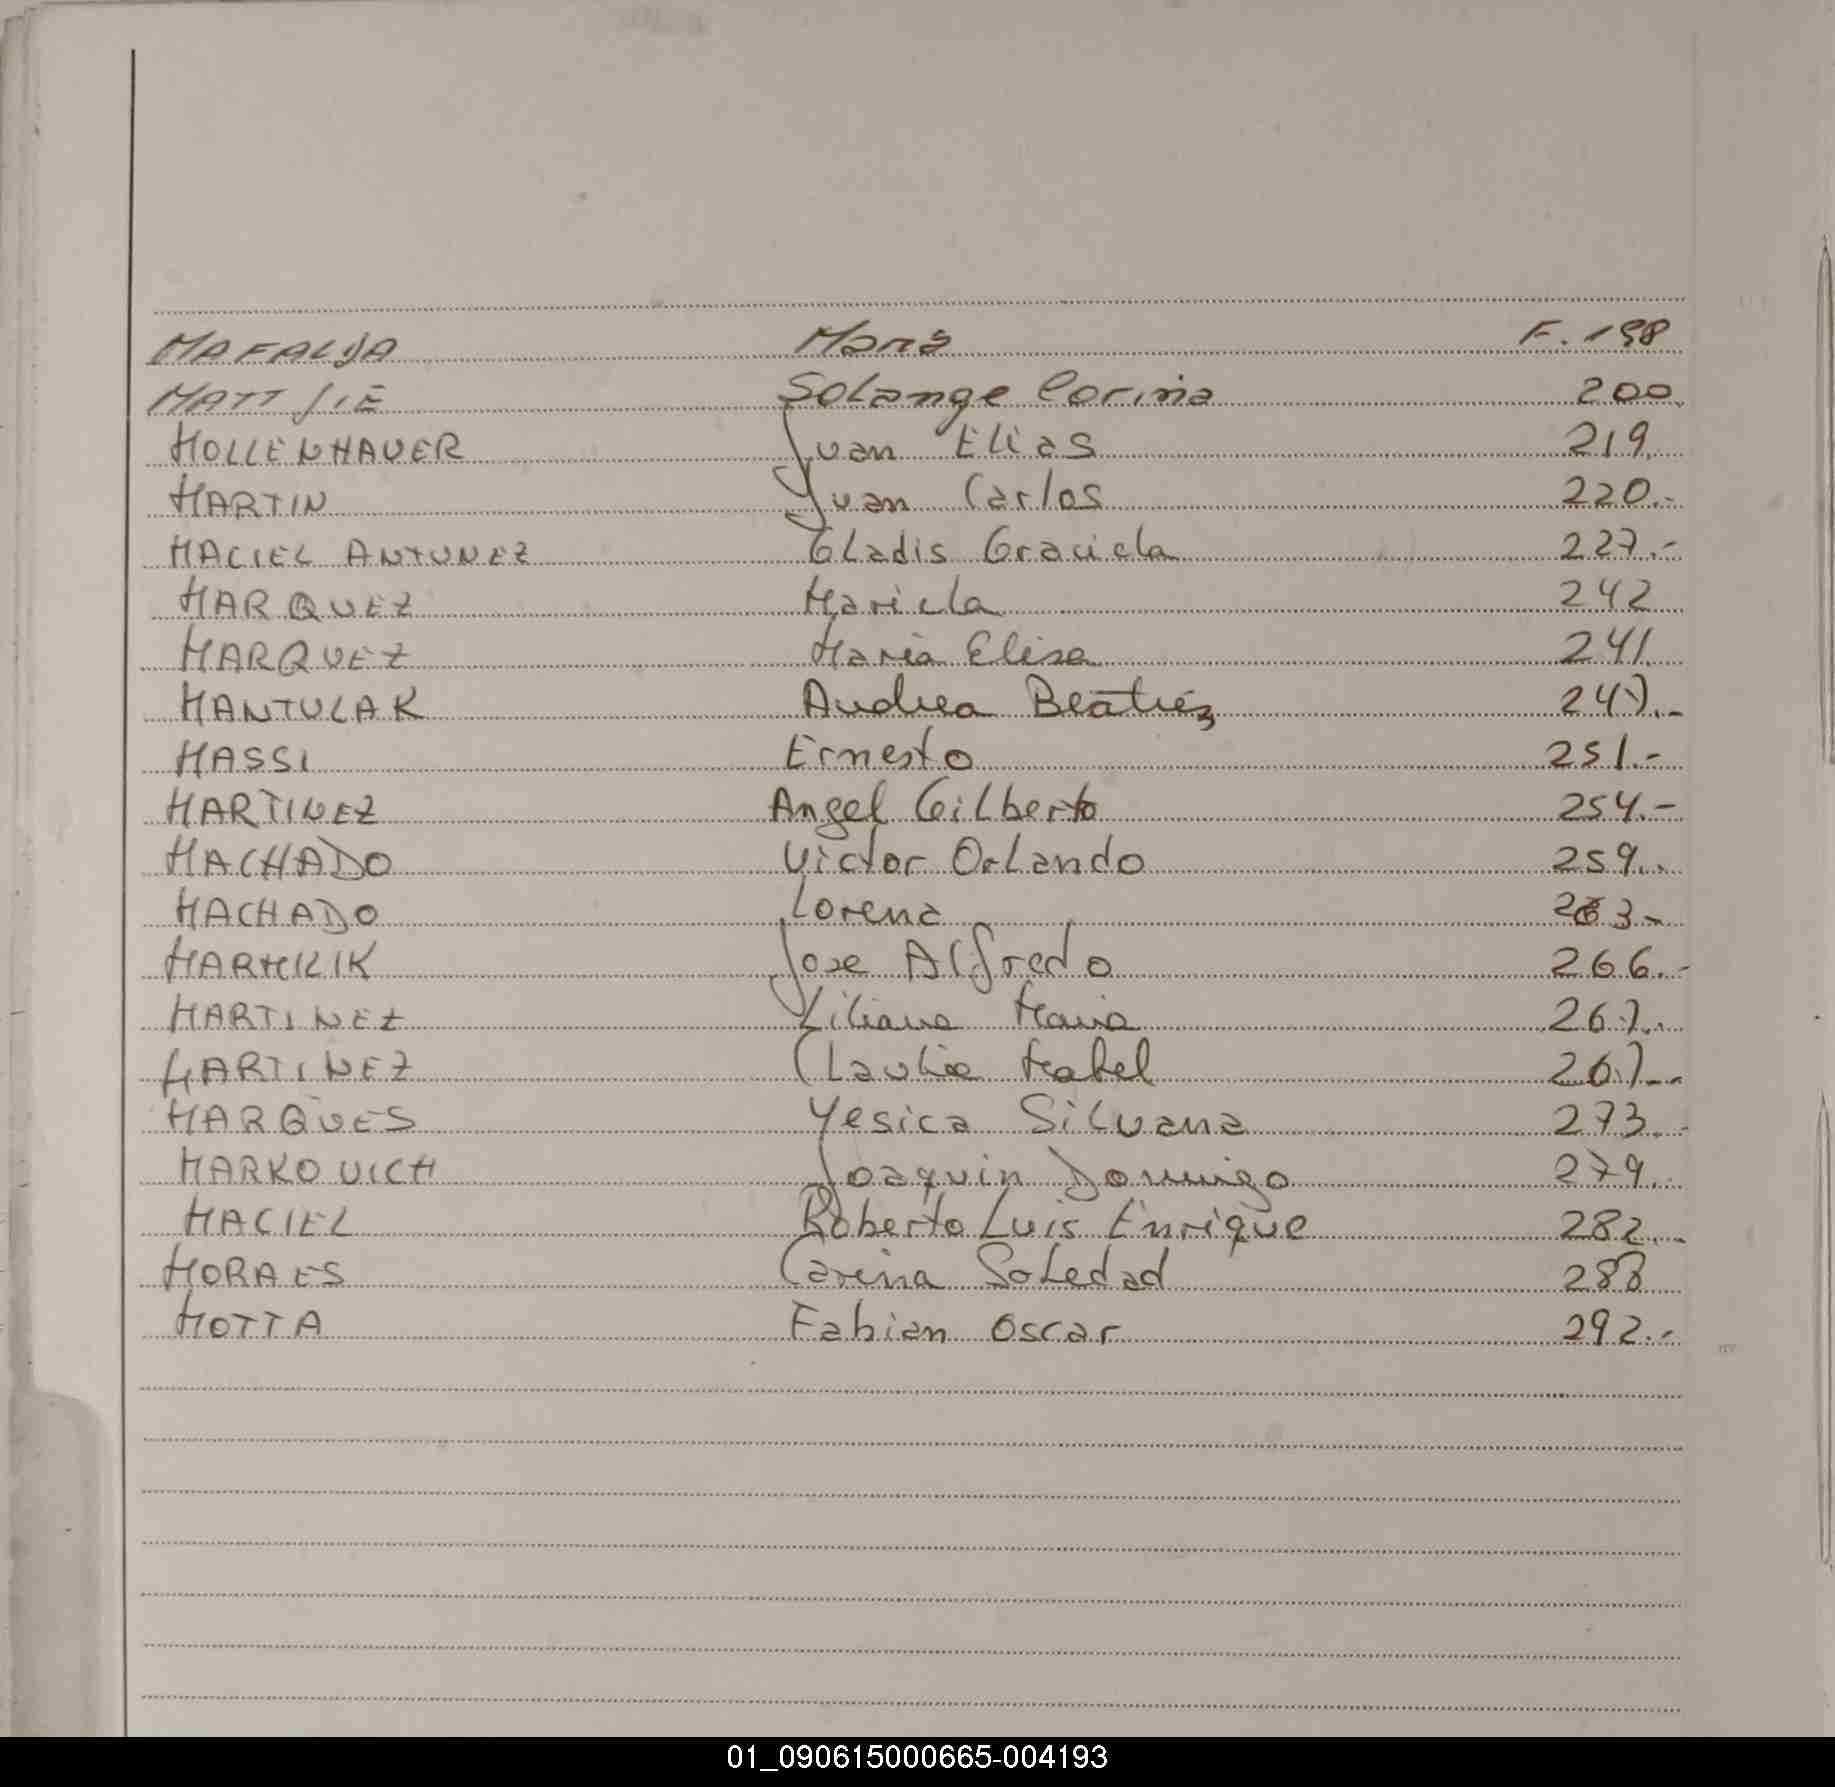 MAFALDA Maria F. 198
MATTJIE Solange Corina 200.
MOLLENHAUER Juan Elias 219.
MARTIN Juan Carlos 220.-
MACIEL ANTUNEZ Gladis Graciela 227.-
MARQUEZ Maricla 242
MARQUEZ Maria Elisa 241
MANTULAK Andrea Beatriz 247.-
MASSI Ernesto 251.-
MARTINEZ Angel Gilberto 254.-
MACHADO Victor Orlando 259.-
MACHADO Lorena 263-
MARMILIK Jose Alfredo 266.-
MARTINEZ Liliana Maria 267.-
MARTINEZ Claudia Mabel 267.-
MARQUES Yesica Silvana 273.-
MARKOVICH Joaquin Domingo 279.-
MACIEL Roberto Luis Enrique 282.-
MORAES Carina Soledad 288
MOTTA Fabian Oscar 292.-
01_090615000665-004193